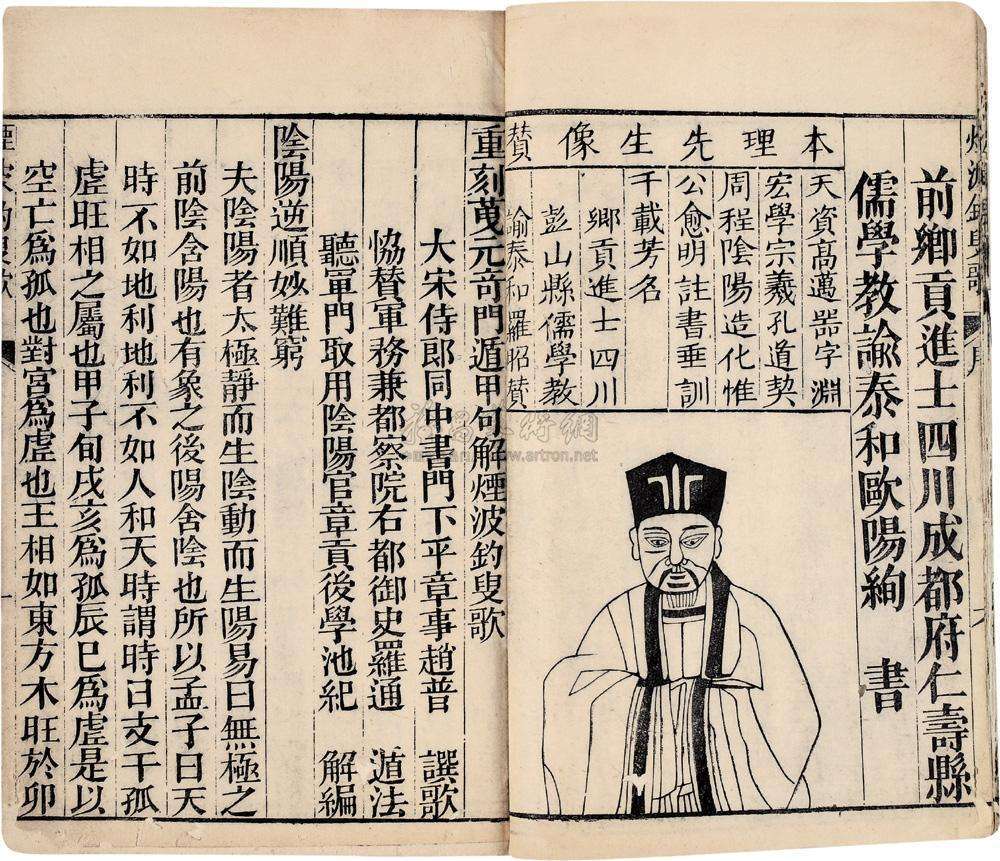 前鄉貢進士四川成都府仁壽縣
儒學教諭泰和歐陽絢 書
本理先生像贊
天資高邁器宇淵
宏學宗羲孔道契
周程陰陽造化惟
公愈明註書垂訓
千載芳名
鄉貢進士四川
彭山縣儒學教
諭泰和羅昭贊
重刻莨元奇門遁甲句解煙波釣叟歌
大宋侍郎同中書門下平章事趙普 譔歌
恊賛軍務兼都察院右都御史羅通 遁法
聽軍門取用陰陽官章貢後學池紀 解編
陰陽逆順妙難窮
夫陰陽者太極靜而生陰動而生陽易曰無極之
前陰含陽也有象之後陽舍陰也所以孟子曰天
時不如地利地利不如人和天時謂時日支干孤
虛旺相之屬也甲子旬戌亥為孤辰巳為虛是以
空亡為孤也對宮為虛也王相如東方木旺於卯
www.artron.net